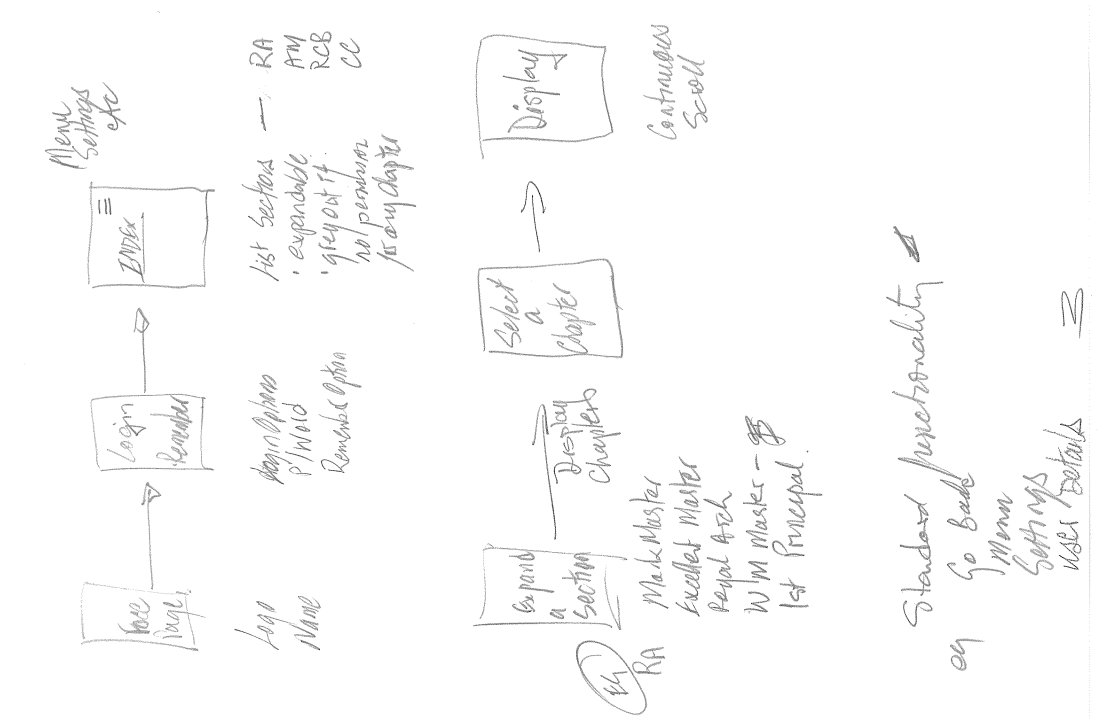 Face
Page
Logo
Name
Login
Remember
Login Options
P/Word
Remember Option
Menu
Settings
etc
INDEX
List Sections — RA
AM
RCB
CC
· expandable
· grey out if
no permission
for any chapter
eg
RA
Expand
a
Section
Mark Master
Excellent Master
Royal Arch
W/M Master -
1st Principal.
Display
Chapters
Select
a
Chapter
Display
Continuous
Scroll
Standard functionality
eg Go Back
Menu
Settings
User Details